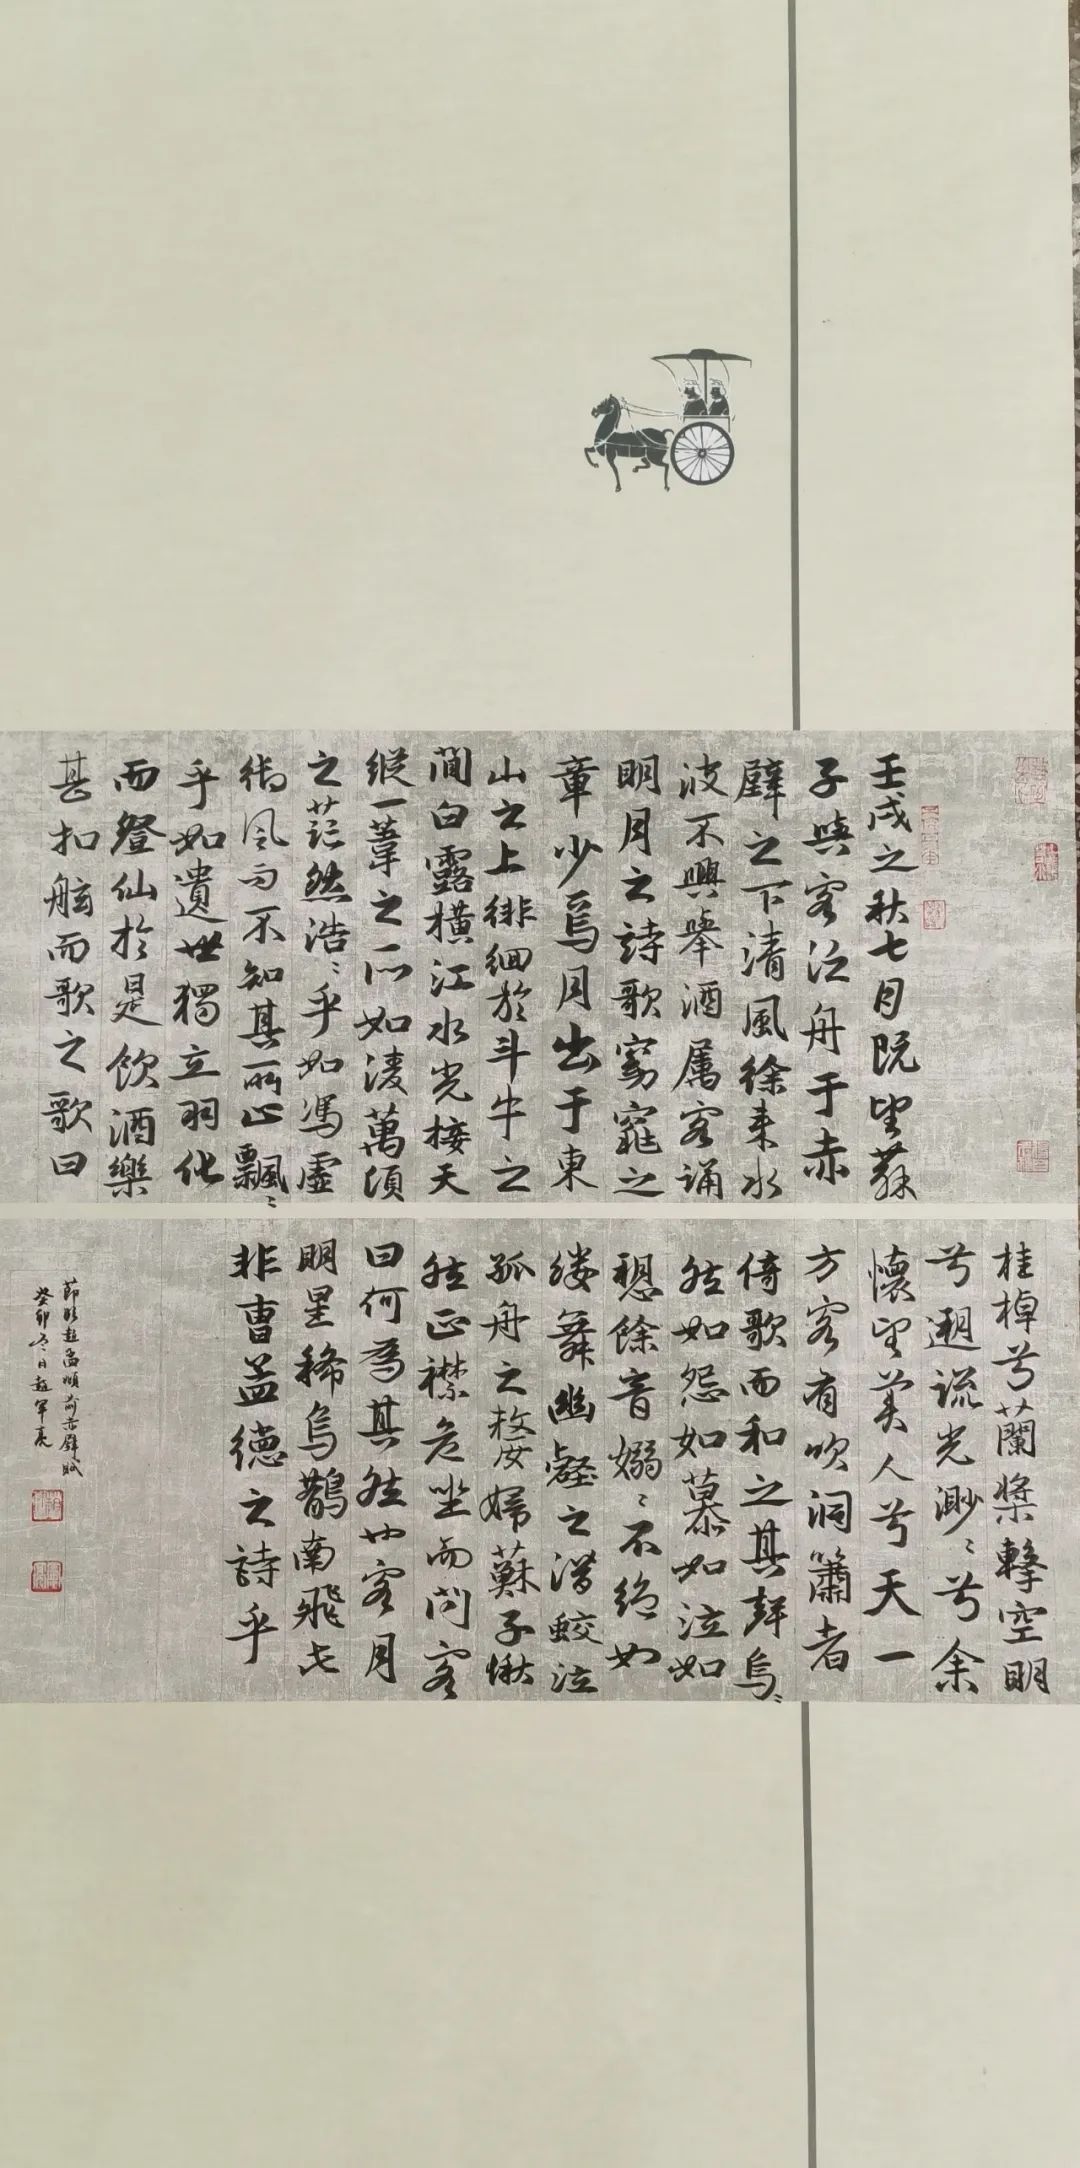 壬戌之秋七月既望蘇
子與客泛舟于赤
壁之下清風徐来水
波不興舉酒属客誦
明月之詩歌窈窕之
章少焉月出于東
山之上徘徊於斗牛之
間白露横江水光接天
縱一葦之所如淩萬頃
之茫然浩〻乎如馮虛
御風而不知其所止飄〻
乎如遺世獨立羽化
而登仙於是飲酒樂
甚扣舷而歌之歌曰
桂棹兮蘭槳擊空明
兮遡流光渺〻兮余
懷望美人兮天一
方客有吹洞簫者
倚歌而和之其聲烏〻
然如怨如慕如泣如
愬餘音嫋〻不絶如
縷舞幽壑之潜蛟泣
孤舟之嫠婦蘇子愀
然正襟危坐而问客
曰何為其然也客曰月
明星稀烏鵲南飛此
非曹孟德之詩乎
節臨趙孟頫前赤壁賦
癸卯冬日趙軍亮